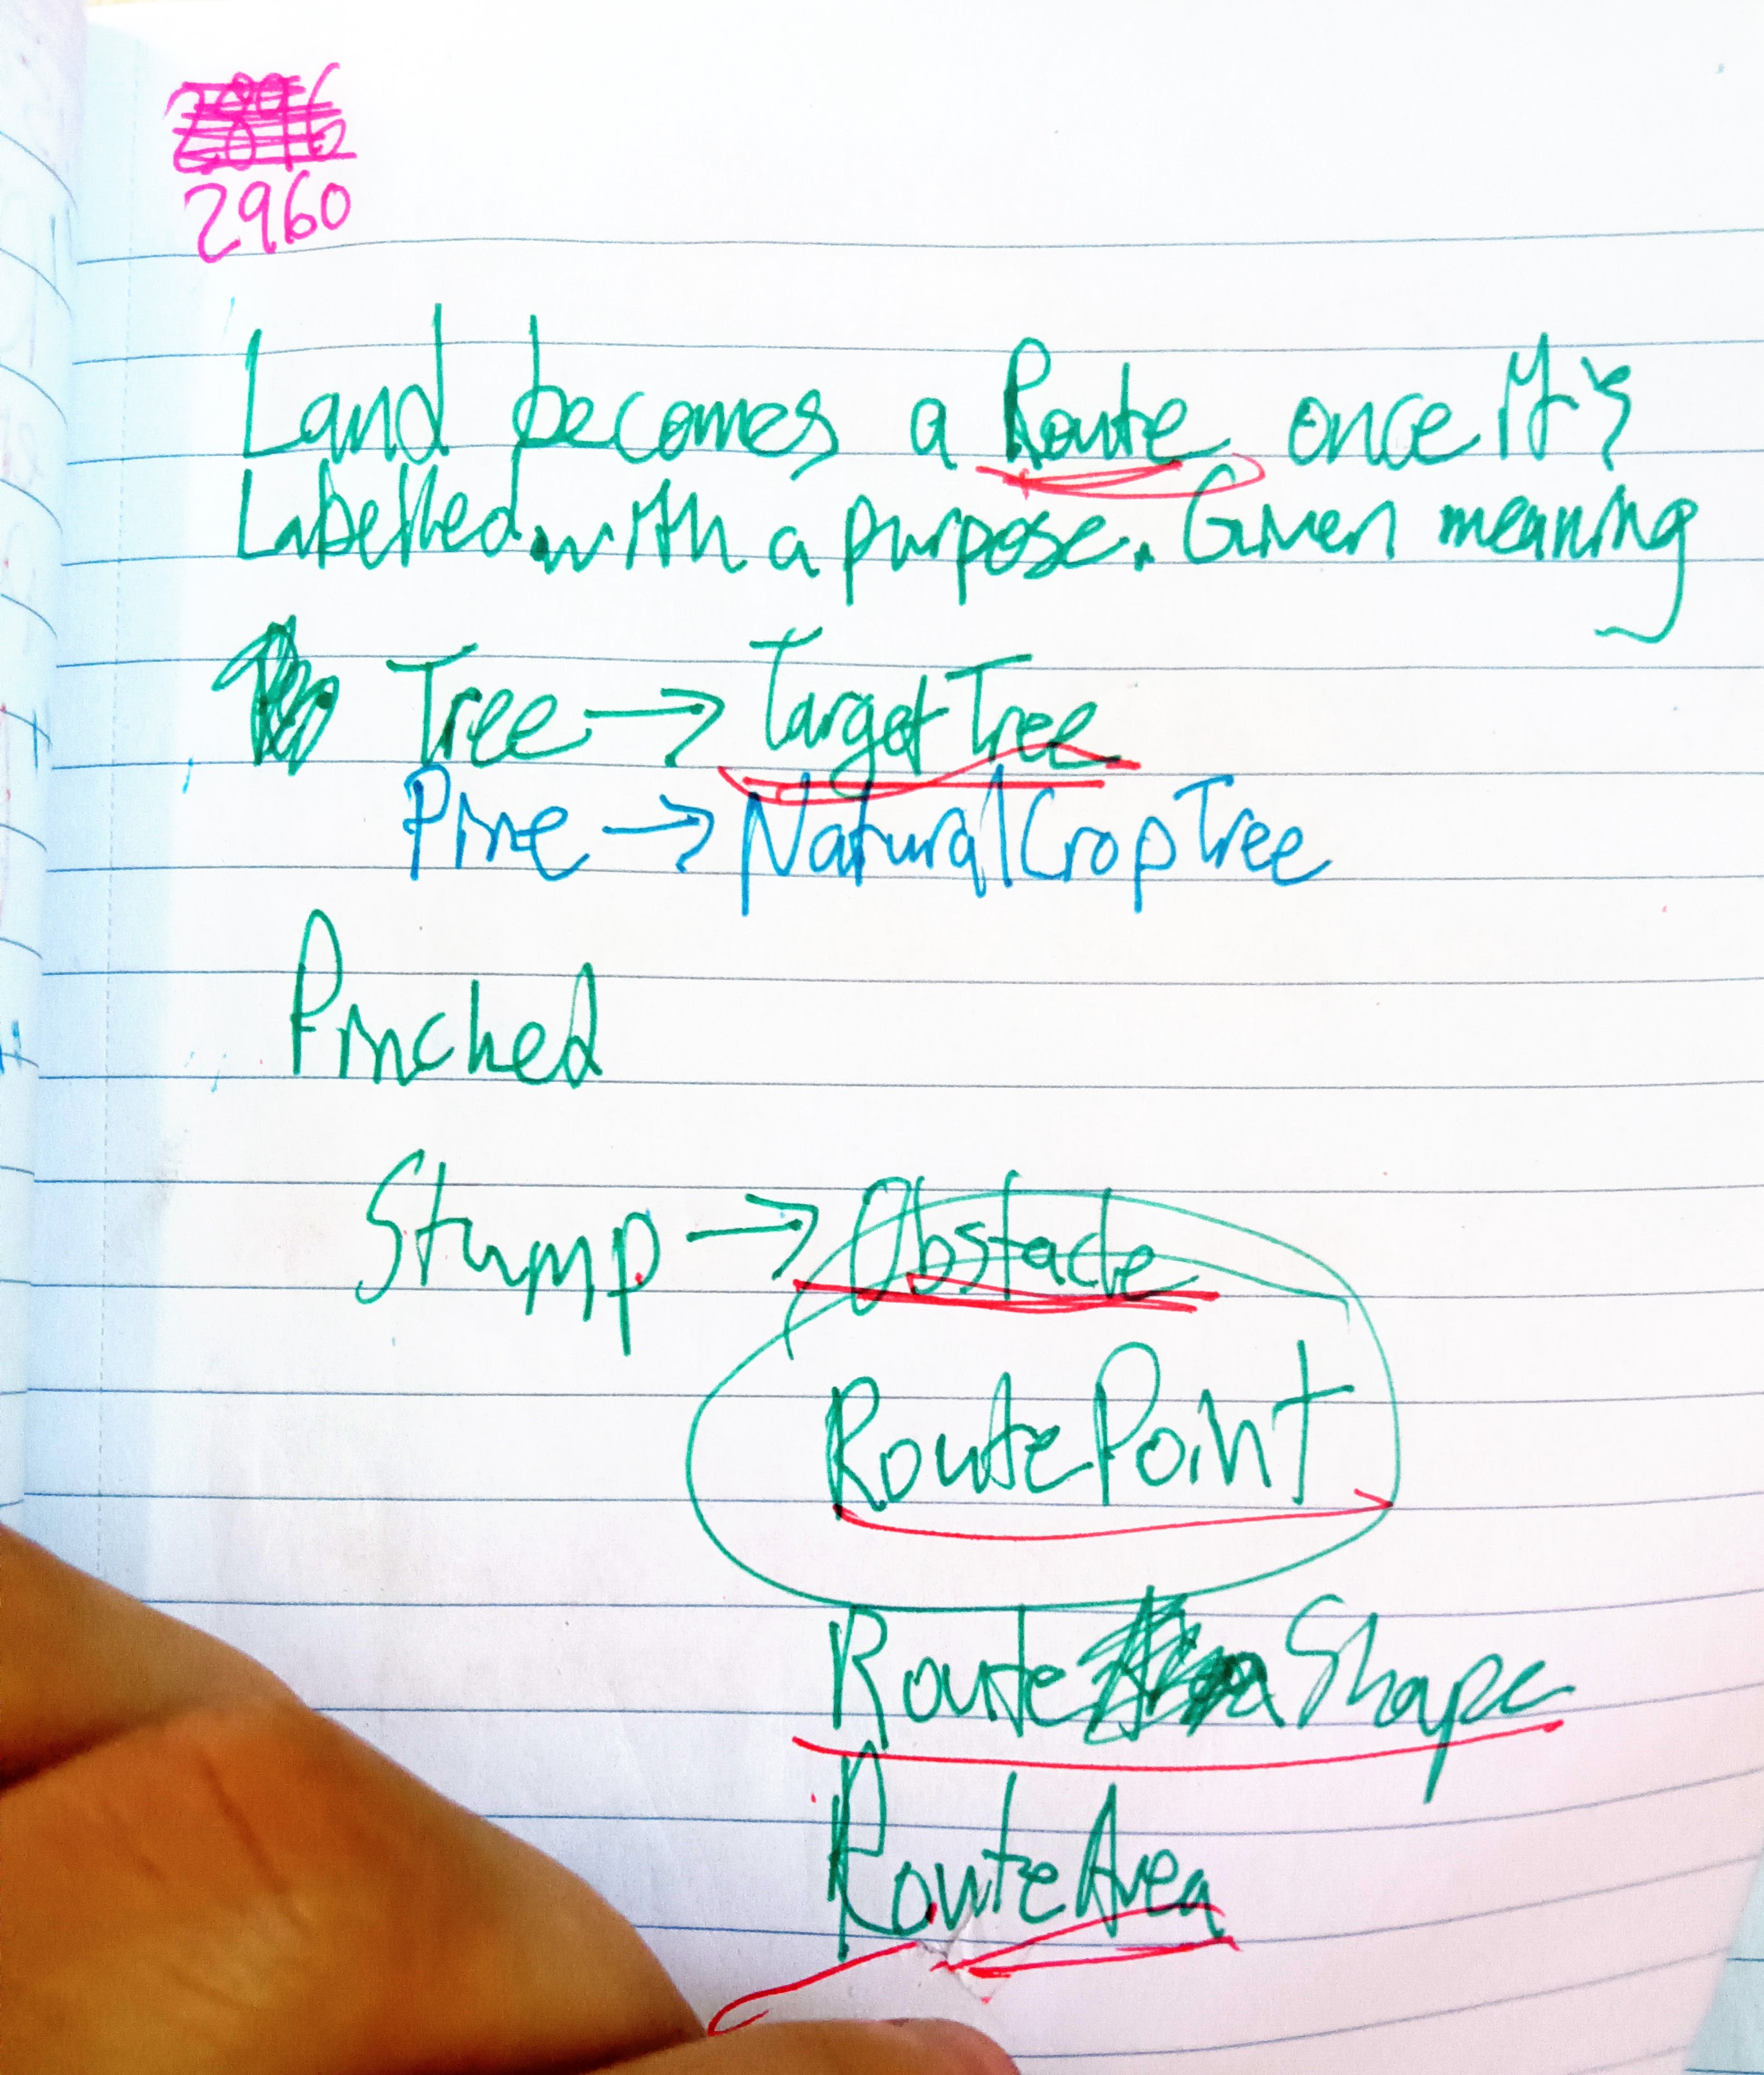 2896
2960
Land becomes a Route once it's
Labelled with a purpose. Given meaning
Tree → TargetTree
Pine → NaturalCropTree
Pinched
Stump → Obstacle
RoutePoint
Route Shape
RouteArea